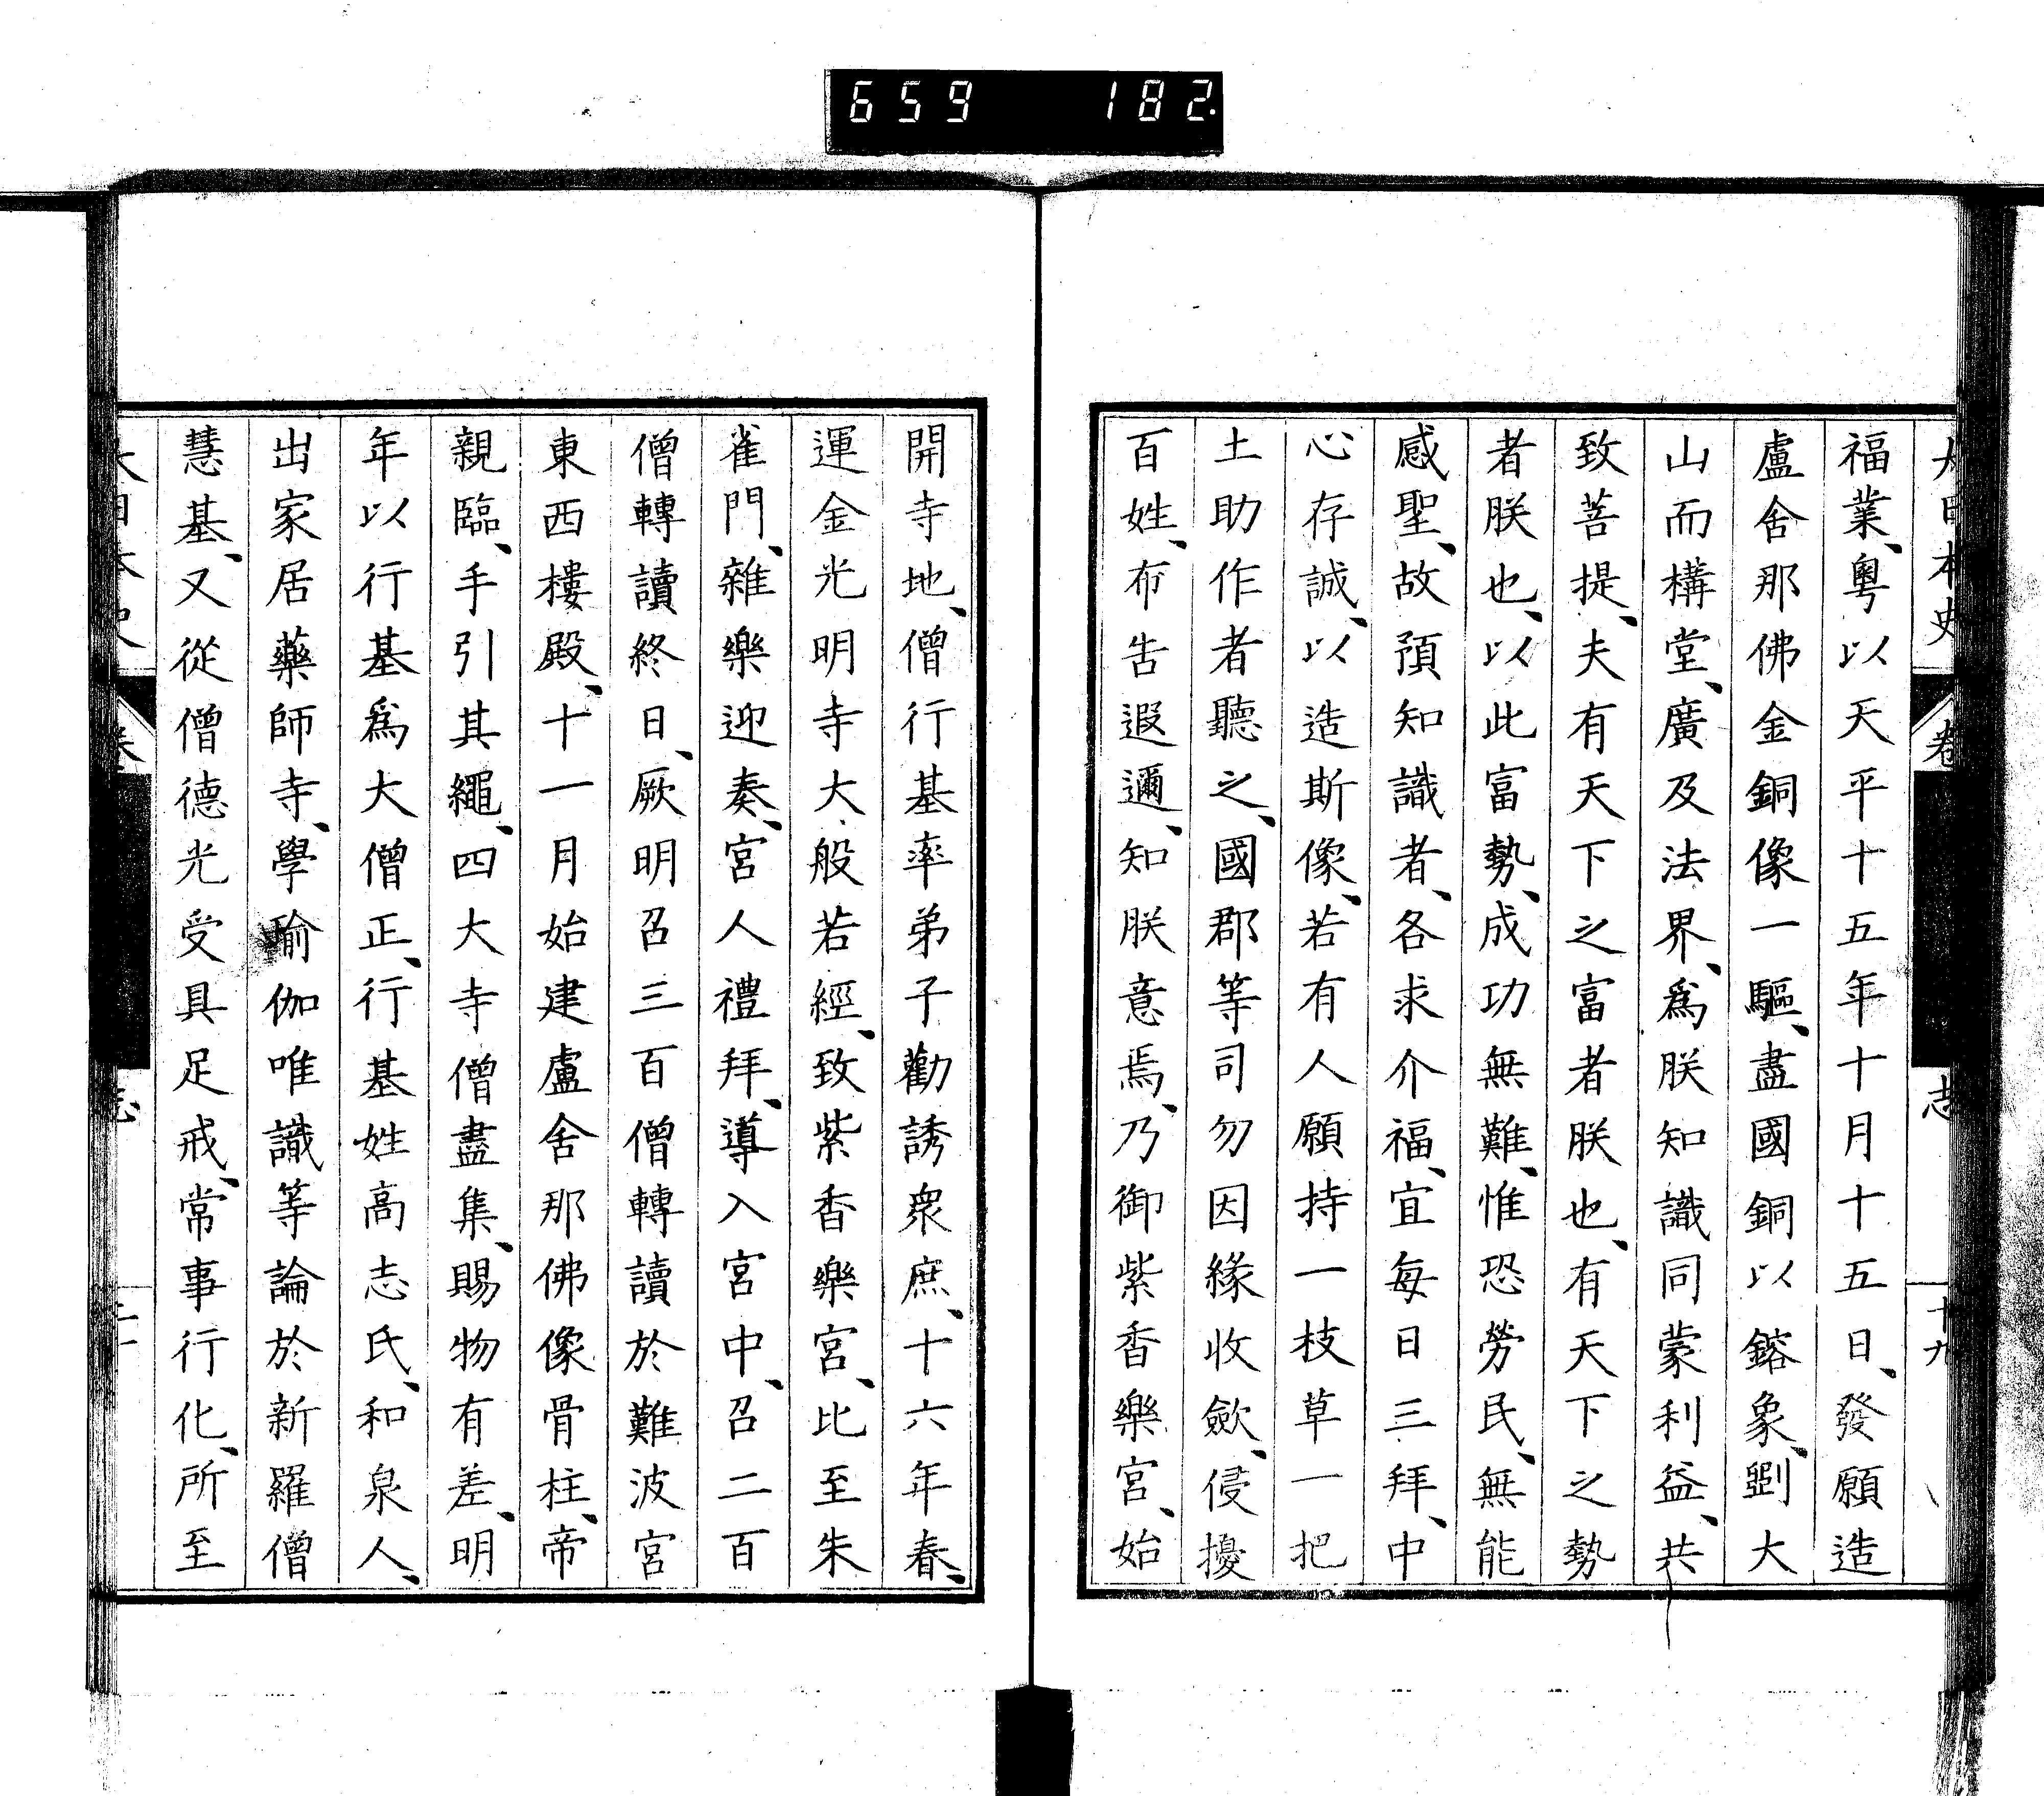 659 182
大日本史 卷 志 十九
福業、粤以天平十五年十月十五日、發願造
盧舍那佛金銅像一軀、盡國銅以鎔象、劉大
山而構堂、廣及法界、爲朕知識同蒙利益、共
致菩提、夫有天下之富者朕也、有天下之勢
者朕也、以此富勢、成功無難、惟恐勞民、無能
感聖、故預知識者、各求介福、宜每日三拜、中
心存誠、以造斯像、若有人願持一枝草一把
土助作者聽之、國郡等司勿因緣收斂、侵擾
百姓、布告遐邇、知朕意焉、乃御紫香樂宮、始
開寺地、僧行基率弟子勸誘衆庶、十六年春、
運金光明寺大般若經、致紫香樂宮、比至朱
雀門、雜樂迎奏、宮人禮拜、導入宮中、召二百
僧轉讀終日、厥明召三百僧轉讀於難波宮
東西樓殿、十一月始建盧舍那佛像骨柱、帝
親臨、手引其繩、四大寺僧盡集、賜物有差、明
年以行基爲大僧正、行基姓高志氏、和泉人、
出家居藥師寺、學瑜伽唯識等論於新羅僧
慧基、又從僧德光受具足戒、常事行化、所至
大日本史 卷 志